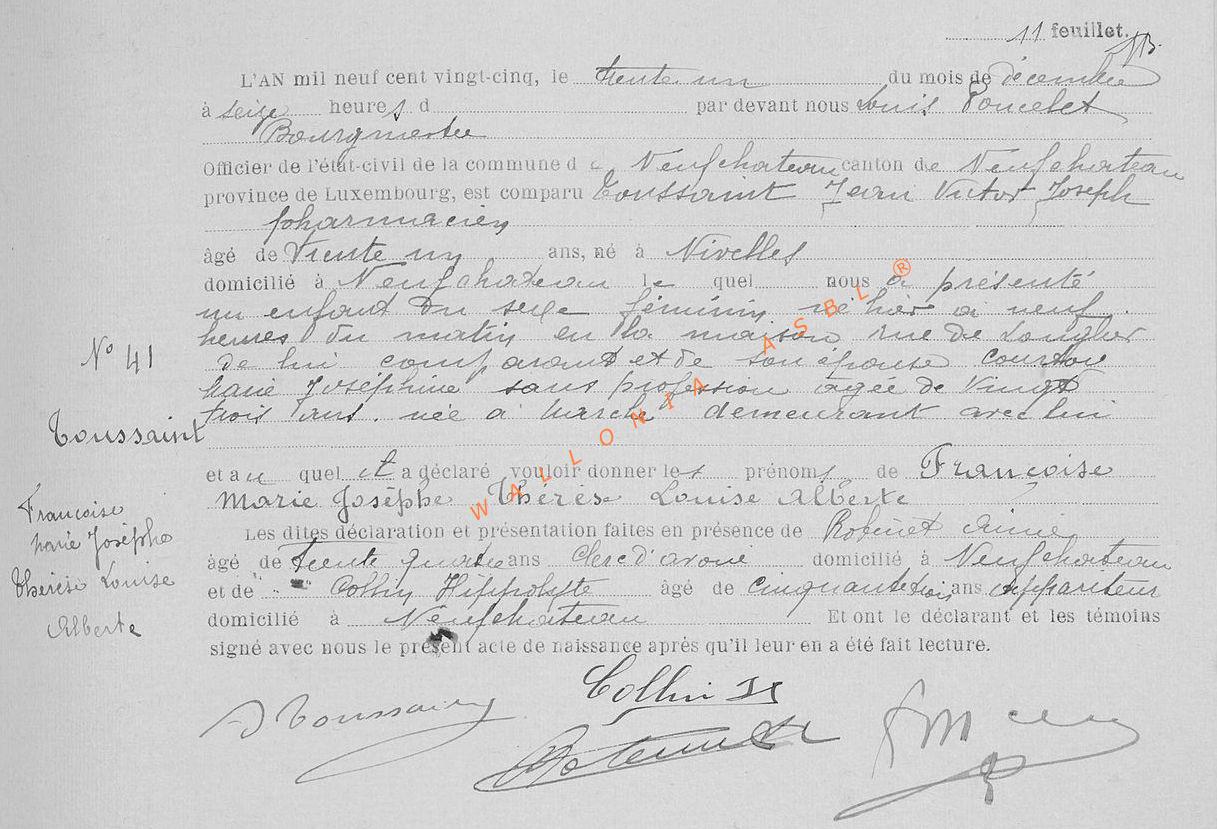 11 feuillet.
L'AN mil neuf cent vingt-cinq, le trente un du mois de décembre
à seize heures d par devant nous Louis Poncelet
Bourgmestre
Officier de l'état-civil de la commune de Neufchateau canton de Neufchateau
province de Luxembourg, est comparu Toussaint Jean Victor Joseph
pharmacien
âgé de Trente un ans, né à Nivelles
domicilié à Neufchateau le quel nous a présenté
un enfant du sexe féminin né hier à neuf
heures du matin en la maison rue de Longlier
de lui comparant et de son épouse
Marie Joséphine sans profession agée de vingt
trois ans née à Marche demeurant avec lui
N° 41
Toussaint
Françoise
Marie Josèphe
Thérèse Louise
Alberte
et au quel il a déclaré vouloir donner les prénoms de Françoise
Marie Josèphe Thérèse Louise Alberte
Les dites déclaration et présentation faites en présence de Robinet Aimé
âgé de trente quatre ans clerc d'avoué domicilié à Neufchateau
et de Collin Hippolyte âgé de cinquante trois ans appariteur
domicilié à Neufchateau Et ont le déclarant et les témoins
signé avec nous le présent acte de naissance après qu'il leur en a été fait lecture.
J Toussaint
Collin H
WALLONIA ASBL ®